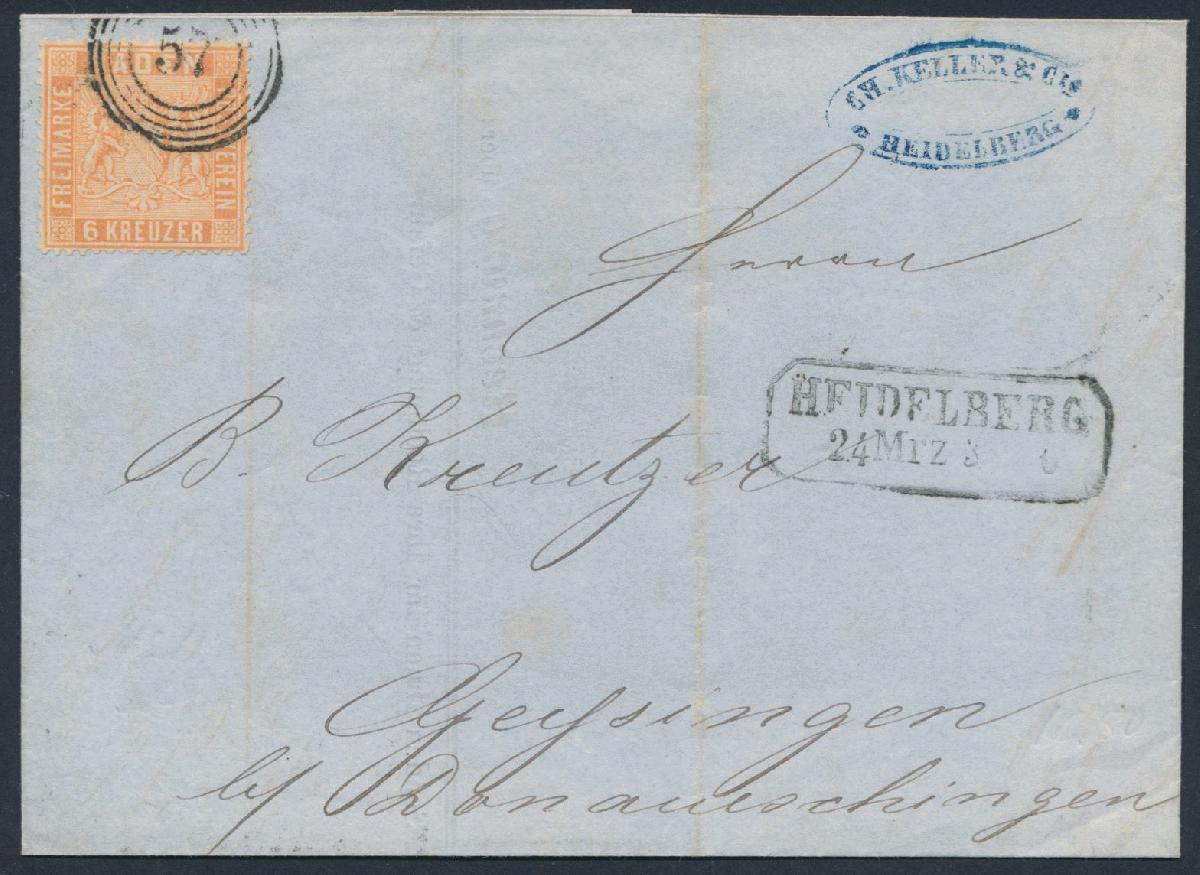 57
BADEN
FREIMARKE
VEREIN
6 KREUZER
CH. KELLER & CIE
HEIDELBERG
Herrn
B. Kreutzer
HEIDELBERG
24 Mrz
Geysingen
b/ Donaueschingen